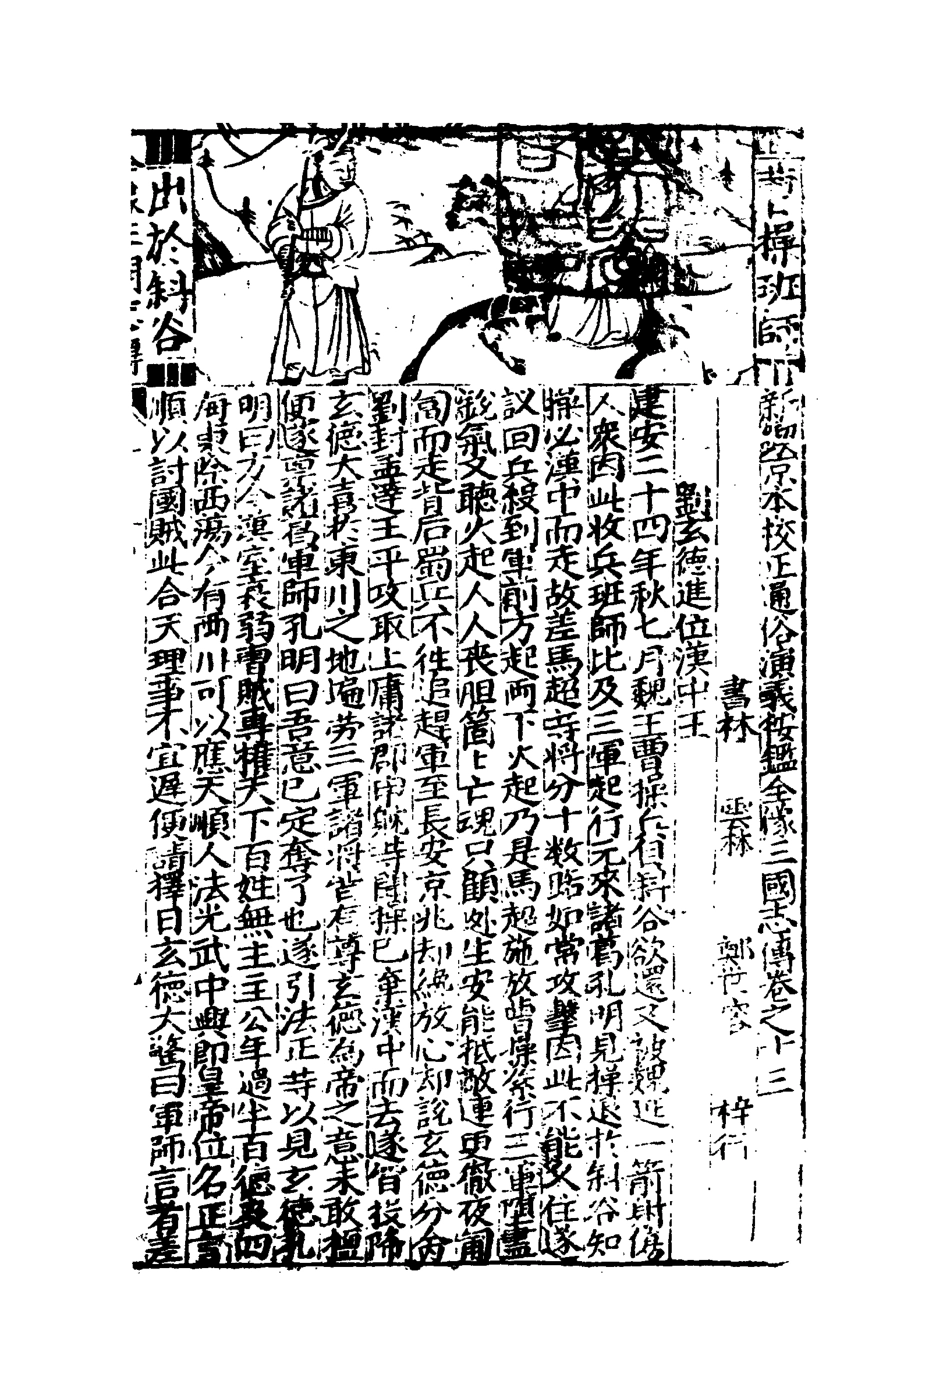 操班師
出於斜谷
新鋟京本校正通俗演義按鑑全像三國志傳卷之十三
書林 雲林 鄭世容 梓行
劉玄德進位漢中王
建安二十四年秋七月魏王曹操兵有斜谷欲還又被魏延一箭射傷
人衆因此收兵班師比及三軍起行元來諸葛孔明見操退於斜谷知
操必漢中而走故差馬超等將分十数路如常攻擊因此不能久住遂
議回兵綫到軍前方起両下火起乃是馬超施放曹操急行三軍隨盡
銳氣又聽火起人人丧胆箇〻亡魂只顧迯生安能抵敵連更徹夜
而走背后蜀兵不徃追趕軍至長安京兆却纔放心却說玄德分付
劉封孟達王平攻取上庸諸郡申躭等聞操已棄漢中而去遂皆投降
玄德大喜於東川之地遍劳三軍諸將皆有尊玄德為帝之意未敢擅
便遂禀諸葛軍師孔明曰吾意已定奪了也遂引法正等以見玄德孔
明曰方今漢室衰弱曹賊專權天下百姓無主主公年過半百德及四
海東除西蕩今有両川可以應天順人法光武中興即皇帝位名正言
順以討國賊此合天理事不宜遲便請擇日玄德大驚曰軍師言者差